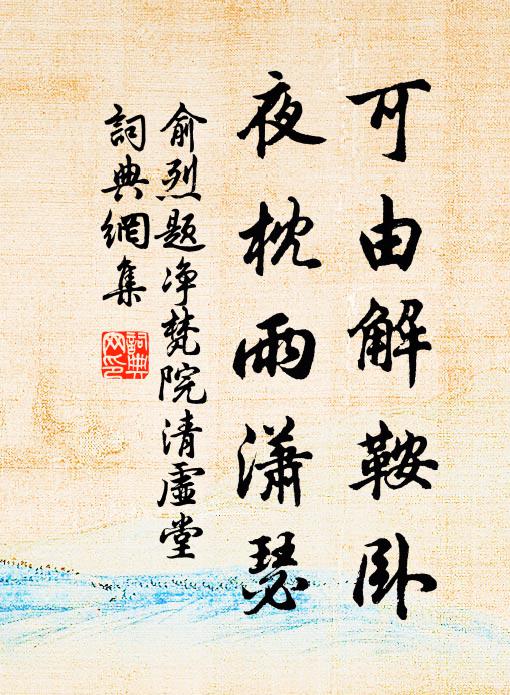 可由解鞍卧
夜枕雨瀟瑟
俞烈题净梵院清虚堂
詞典網集